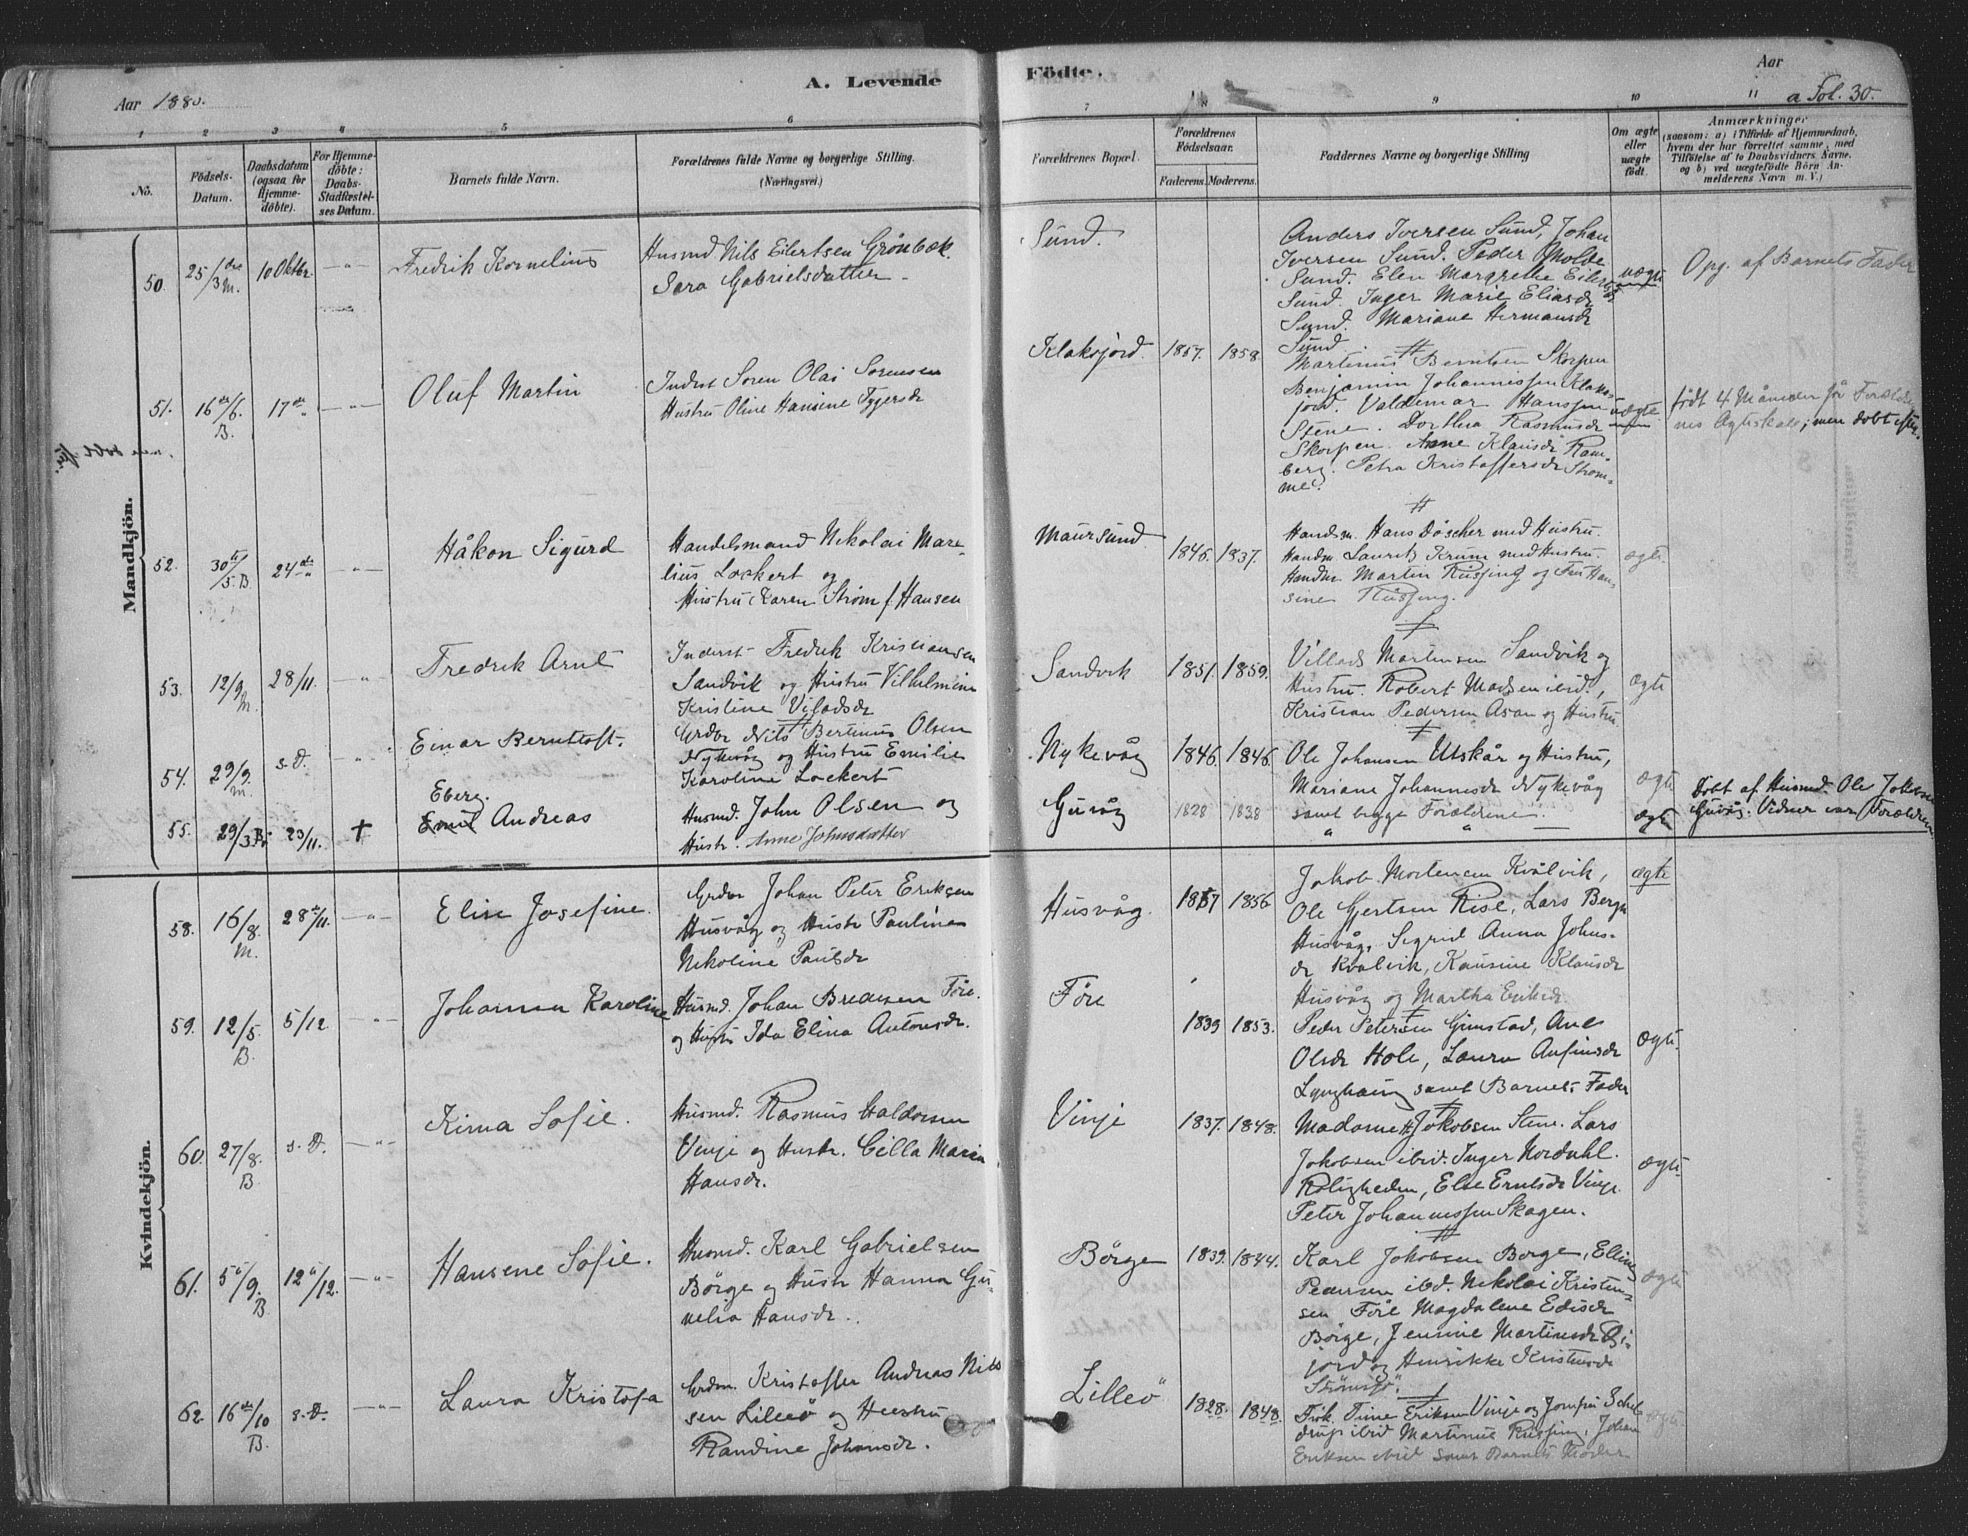 Aar 1880.
A. Levende
Födte.
Aar
a Fol. 30.
1 2 3 4 5 6 7 8 9 10 11
No.
Födsels-
Datum.
Daabsdatum
(ogsaa for
Hjemme-
döbte).
For Hjemme-
döbte:
Daabs-
Stadfæstel-
ses Datum.
Barnets fulde Navn.
Forældrenes fulde Navne og borgerlige Stilling.
(Næringsvei.)
Forældrenes Bopæl.
Forældrenes
Födselsaar.
Faderens. Moderens.
Faddernes Navne og borgerlige Stilling
Om ægte
eller
uægte
født.
Anmærkninger
(saasom: a) i Tilfælde af Hjemmedaab,
hvem der har forrettet samme, med
Tilføielse af to Daabsvidners Navne,
og b) ved uægtefødte Börn An-
melderens Navn m. V.)
Mandkjön.
50. 25/3 M. 10 Oktbr.
Fredrik Kornelius
Husmd Nils Eilertsen Grönbæk.
Sara Gabrielsdatter
Sund.
Anders Iversen Sund, Johan
Iversen Sund. Peder Molde
Sund. Elen Margrethe Eilertsdr
Sund. Inger Marie Eliasdr
Sund. Mariane Hermansdr
Sund
uægte
Opg. af Barnets Fader
51. 16de/6. B. 17de
Oluf Martin
Inderst Soren Olai Sorensen
Hustru Oline Hansine Tygersdr
Klaksjord. 1857. 1858.
Martinus Berntsen Skorpen
Benjamin Johannessen Klaks-
jord. Valdemar Hanssen
Stene. Dorthea Rasmusdr
Skorpen. Anne Klausdr Ram-
berg. Petra Kristoffersdr Strom-
me.
uægte
født 4 Maaneder før Forældre-
nes Ægteskab; men døbt efter.
52. 30te/5. B. 24de
Håkon Sigurd
Handelsmand Nikolai Mare-
lius Lockert og
Hustru Karen Strøm f. Hansen
Maursund 1846. 1837.
Handsm. Hans Döscher med Hustru.
Handm. Lauritz Krum med Hustru.
Handm. Martin Rüssing og Fru Han-
sine Rüssing.
ægte
53. 12/9. M. 28/11.
Fredrik Arnt
Inderst Fredrik Kristiansen
Sandvik og Hustru Vilhelmine
Kristine Viladsdr
Sandvik 1851. 1859.
Villads Mortensen Sandvik og
Hustru. Robert Madsen ibid.,
Kristian Pedersen Asan og Hustru
ægte
54. 29/9. M. s. D.
Einar Berntoft.
Grdbr Nils Bertinus Olsen
Nykvåg og Hustru Emilie
Karoline Lockert
Nykevåg 1846. 1846.
Ole Johansen Utskår og Hustru,
Mariane Johannesdr Nykevåg
samt begge Forældrene.
ægte
55. 29/3 B. 23/11. †
Eberg.
Emil Andreas
Husmd. John Olsen og
Hustr. Anne Johnsdatter
Guvåg 1828 1838
ægte
Døbt af Husmd. Ole Jakobsen
Guvåg. Vidner var Forældrene
Kvindekjön.
58. 16/8. M. 28de/11.
Elise Josefine.
Grdbr Johan Peter Eriksen
Husvåg og Hustr Pauline
Nikoline Paulsdr
Husvåg. 1857 1856
Jakob Mortensen Kvalvik,
Ole Gjertsen Rise, Lars Berg
Husvåg, Sigrid Anna Johns-
dr Kvalvik, Hansine Klausdr
Husvåg og Martha Eriksdr.
ægte
59. 12/5. B. 5/12
Johanna Karoline
Husmd. Johan Bredesen Före.
og Hustr Ida Elina Antonsdr.
Före 1839 1853.
Peder Petersen Grimstad, Ane
Olsdr Hole, Laura Anfinsdr
Lynghaug samt Barnets Fader
ægte.
60. 27/8. B. s. D.
Kirna Sofie.
Husmd. Rasmus Haldorsen
Vinje og Hustr. Cilla Maria
Hansdr.
Vinje 1837. 1848.
Madame Jakobsen Stene. Lars
Jakobsen ibid. Inger Nordahl
Roligheden, Else Erntsdr Vinje
Peter Johannessen Skagen.
ægte.
61. 5te/9. B. 12te/12.
Hansene Sofie.
Husmd. Karl Gabrielsen
Börge og Hustr Hanna Gu-
nelia Hansdr.
Börge 1839. 1844.
Karl Jakobsen Borge, Elling
Pedersen ibd. Nikolai Kristen-
sen Före Magdalene Edisdr
Börge, Jennine Martinsdr Gi-
jord og Henrikke Kristensdr
Strömsö.
ægte
62. 16de/10 B. s. D.
Laura Kristofa
Grdm. Kristoffer Andreas Nils-
sen Lilleö og Hustru
Randine Johansdr.
Lilleö 1828. 1848.
Frk. Tine Eriksen Vinje og Jomfru Schel-
drup ibid Martinus Rüssing, Johan
Eriksen ibid samt Barnets Moder
ægte